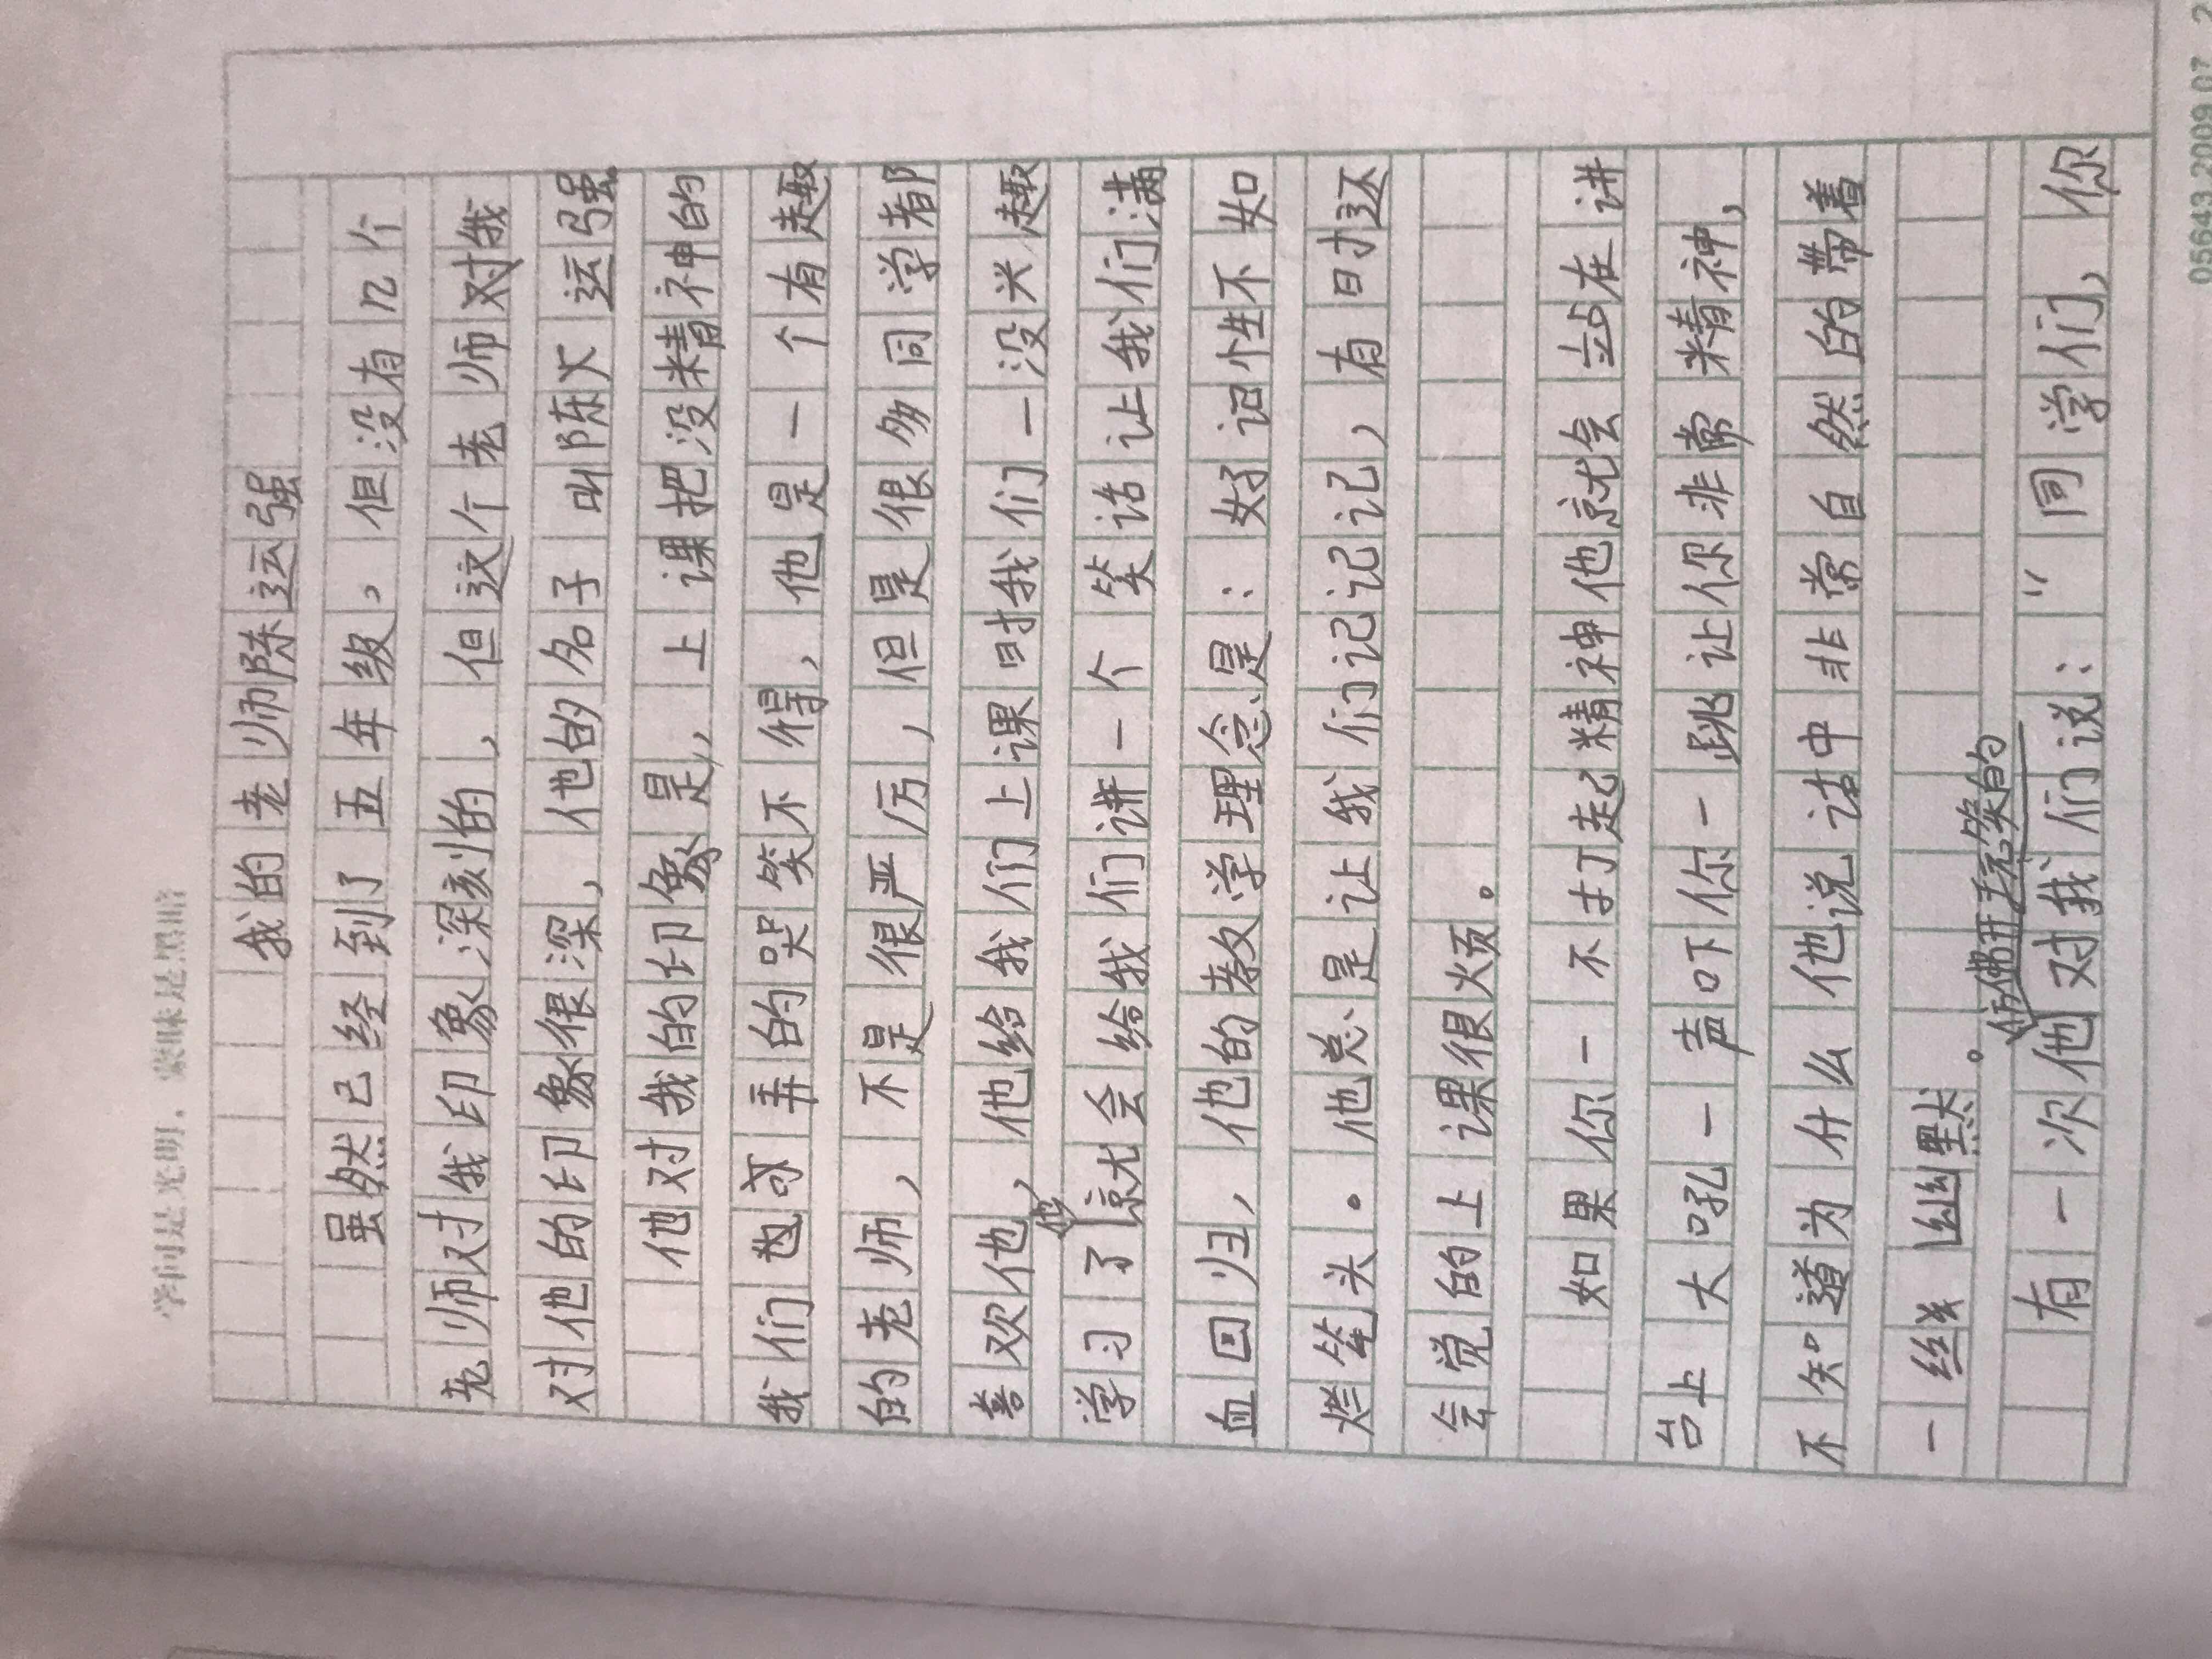 学问是光明，蒙昧是黑暗
我的老师陈运强
虽然已经到了五年级，但没有几个
老师对我印象深刻的，但这个老师对我
对他的印象很深，他的名子叫陈运强
他对我的印象是，上课把没精神的
我们弄的哭笑不得，他是一个有趣
的老师，不是很严厉，但是很多同学都
喜欢他，他给我们上课时我们一没兴趣
学习了他就会给我们讲一个笑话让我们满
血回归，他的教学理念是：好记性不如
烂笔头。他总是让我们记记记，有时还
会觉的上课很烦。
如果你一不打起精神他就会站在讲
台上大吼一声吓你一跳让你非常精神，
不知道为什么他说话中非常自然的带着
一丝幽默。
有一次他仿佛开玩笑的对我们说："同学们，你
05643.2009.07